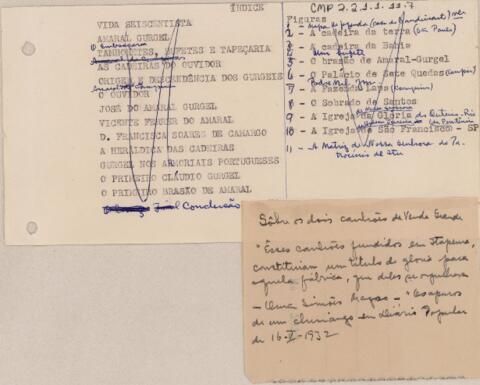 ÍNDICE
CMP 2.2.1.1.11.7
VIDA SEISCENTISTA
AMARAL GURGEL
O Embuçara
TAMBORETES, BUFETES E TAPEÇARIA
AS CADEIRAS DO OUVIDOR
ORIGEM E DESCENDÊNCIA DOS GURGEIS
O OUVIDOR
JOSÉ DO AMARAL GURGEL
VICENTE FERRER DO AMARAL
D. FRANCISCA SOARES DE CAMARGO
A HERÁLDICA DAS CADEIRAS
GURGEL NOS ARMORIAIS PORTUGUESES
O PRIMEIRO CLÁUDIO GURGEL
O PRIMEIRO BRASÃO DE AMARAL
Conclusão
Figuras
1 -
2 - A cadeira da terra (São Paulo)
3 - A cadeira da Bahia
4 - Um bufete
5 - O brasão de Amaral-Gurgel
6 - O Palácio de Sete Quedas (Campinas)
7 - A Fazenda Lapa (Campinas)
8 - O Sobrado de Santos
9 - A Igreja da Glória do Outeiro - Rio
10 - A Igreja de São Francisco - SP
11 - A Matriz de Nossa Senhora
de Itu
Sôbre os dois canhões de Vende Grande
"Êsses canhões fundidos em Ipanema,
constituiam um título de gloria para
aquela fábrica, que deles se orgulhava
— Lima Simões Magro — "
de um chimango em Diário Popular
de 16-V-1932